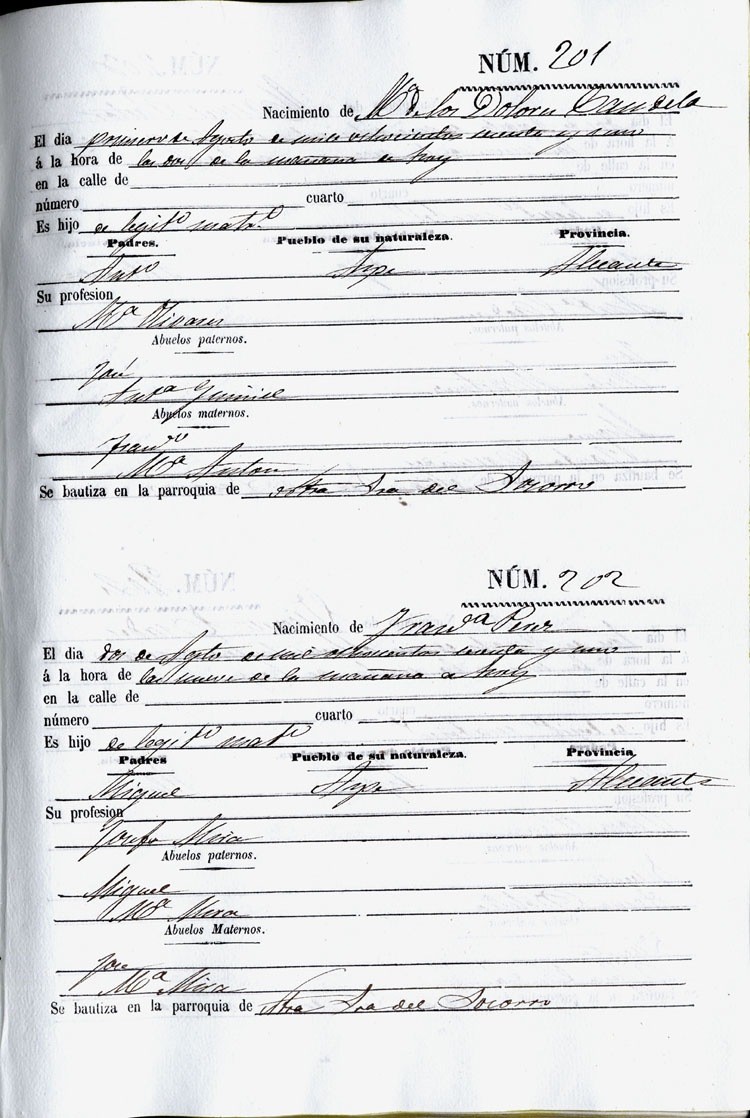 NÚM. 201
Nacimiento de Mª de los Dolores Candela
El dia primero de Agosto de mil ochocientos sesenta y uno
á la hora de las dos de la mañana de hoy
en la calle de
número cuarto
Es hijo de legitº matº
Padres. Pueblo de su naturaleza. Provincia.
Antº Aspe Alicante
Su profesion
Mª Olivares
Abuelos paternos.
José
Antª
Abuelos maternos.
Franco
Mª Anton
Se bautiza en la parroquia de Ntra Sra del Socorro
NÚM. 202
Nacimiento de Francª Perez
El dia dos de Agto de mil ochocientos sesenta y uno
á la hora de las nueve de la mañana de hoy
en la calle de
número cuarto
Es hijo de legitº matº
Padres Pueblo de su naturaleza. Provincia
Miguel Aspe Alicante
Su profesion
Josefa Mira
Abuelos paternos.
Miguel
Mª Mira
Abuelos Maternos.
José
Mª Mira
Se bautiza en la parroquia de Ntra Sra del Socorro